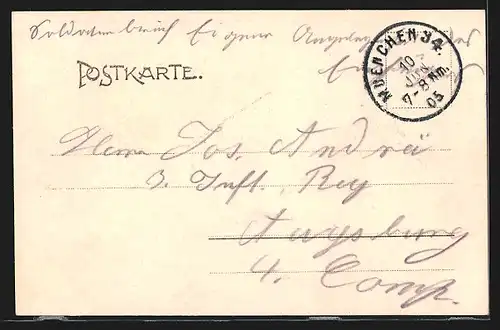 Soldatenbrief Eigene Angelegenheit des
Empfängers
POSTKARTE.
MUENCHEN 34.
10
JUN.
7-8 Nm.
05
Herrn Jos. Andrä
3. Inft. Reg
Augsburg
4. Comp.